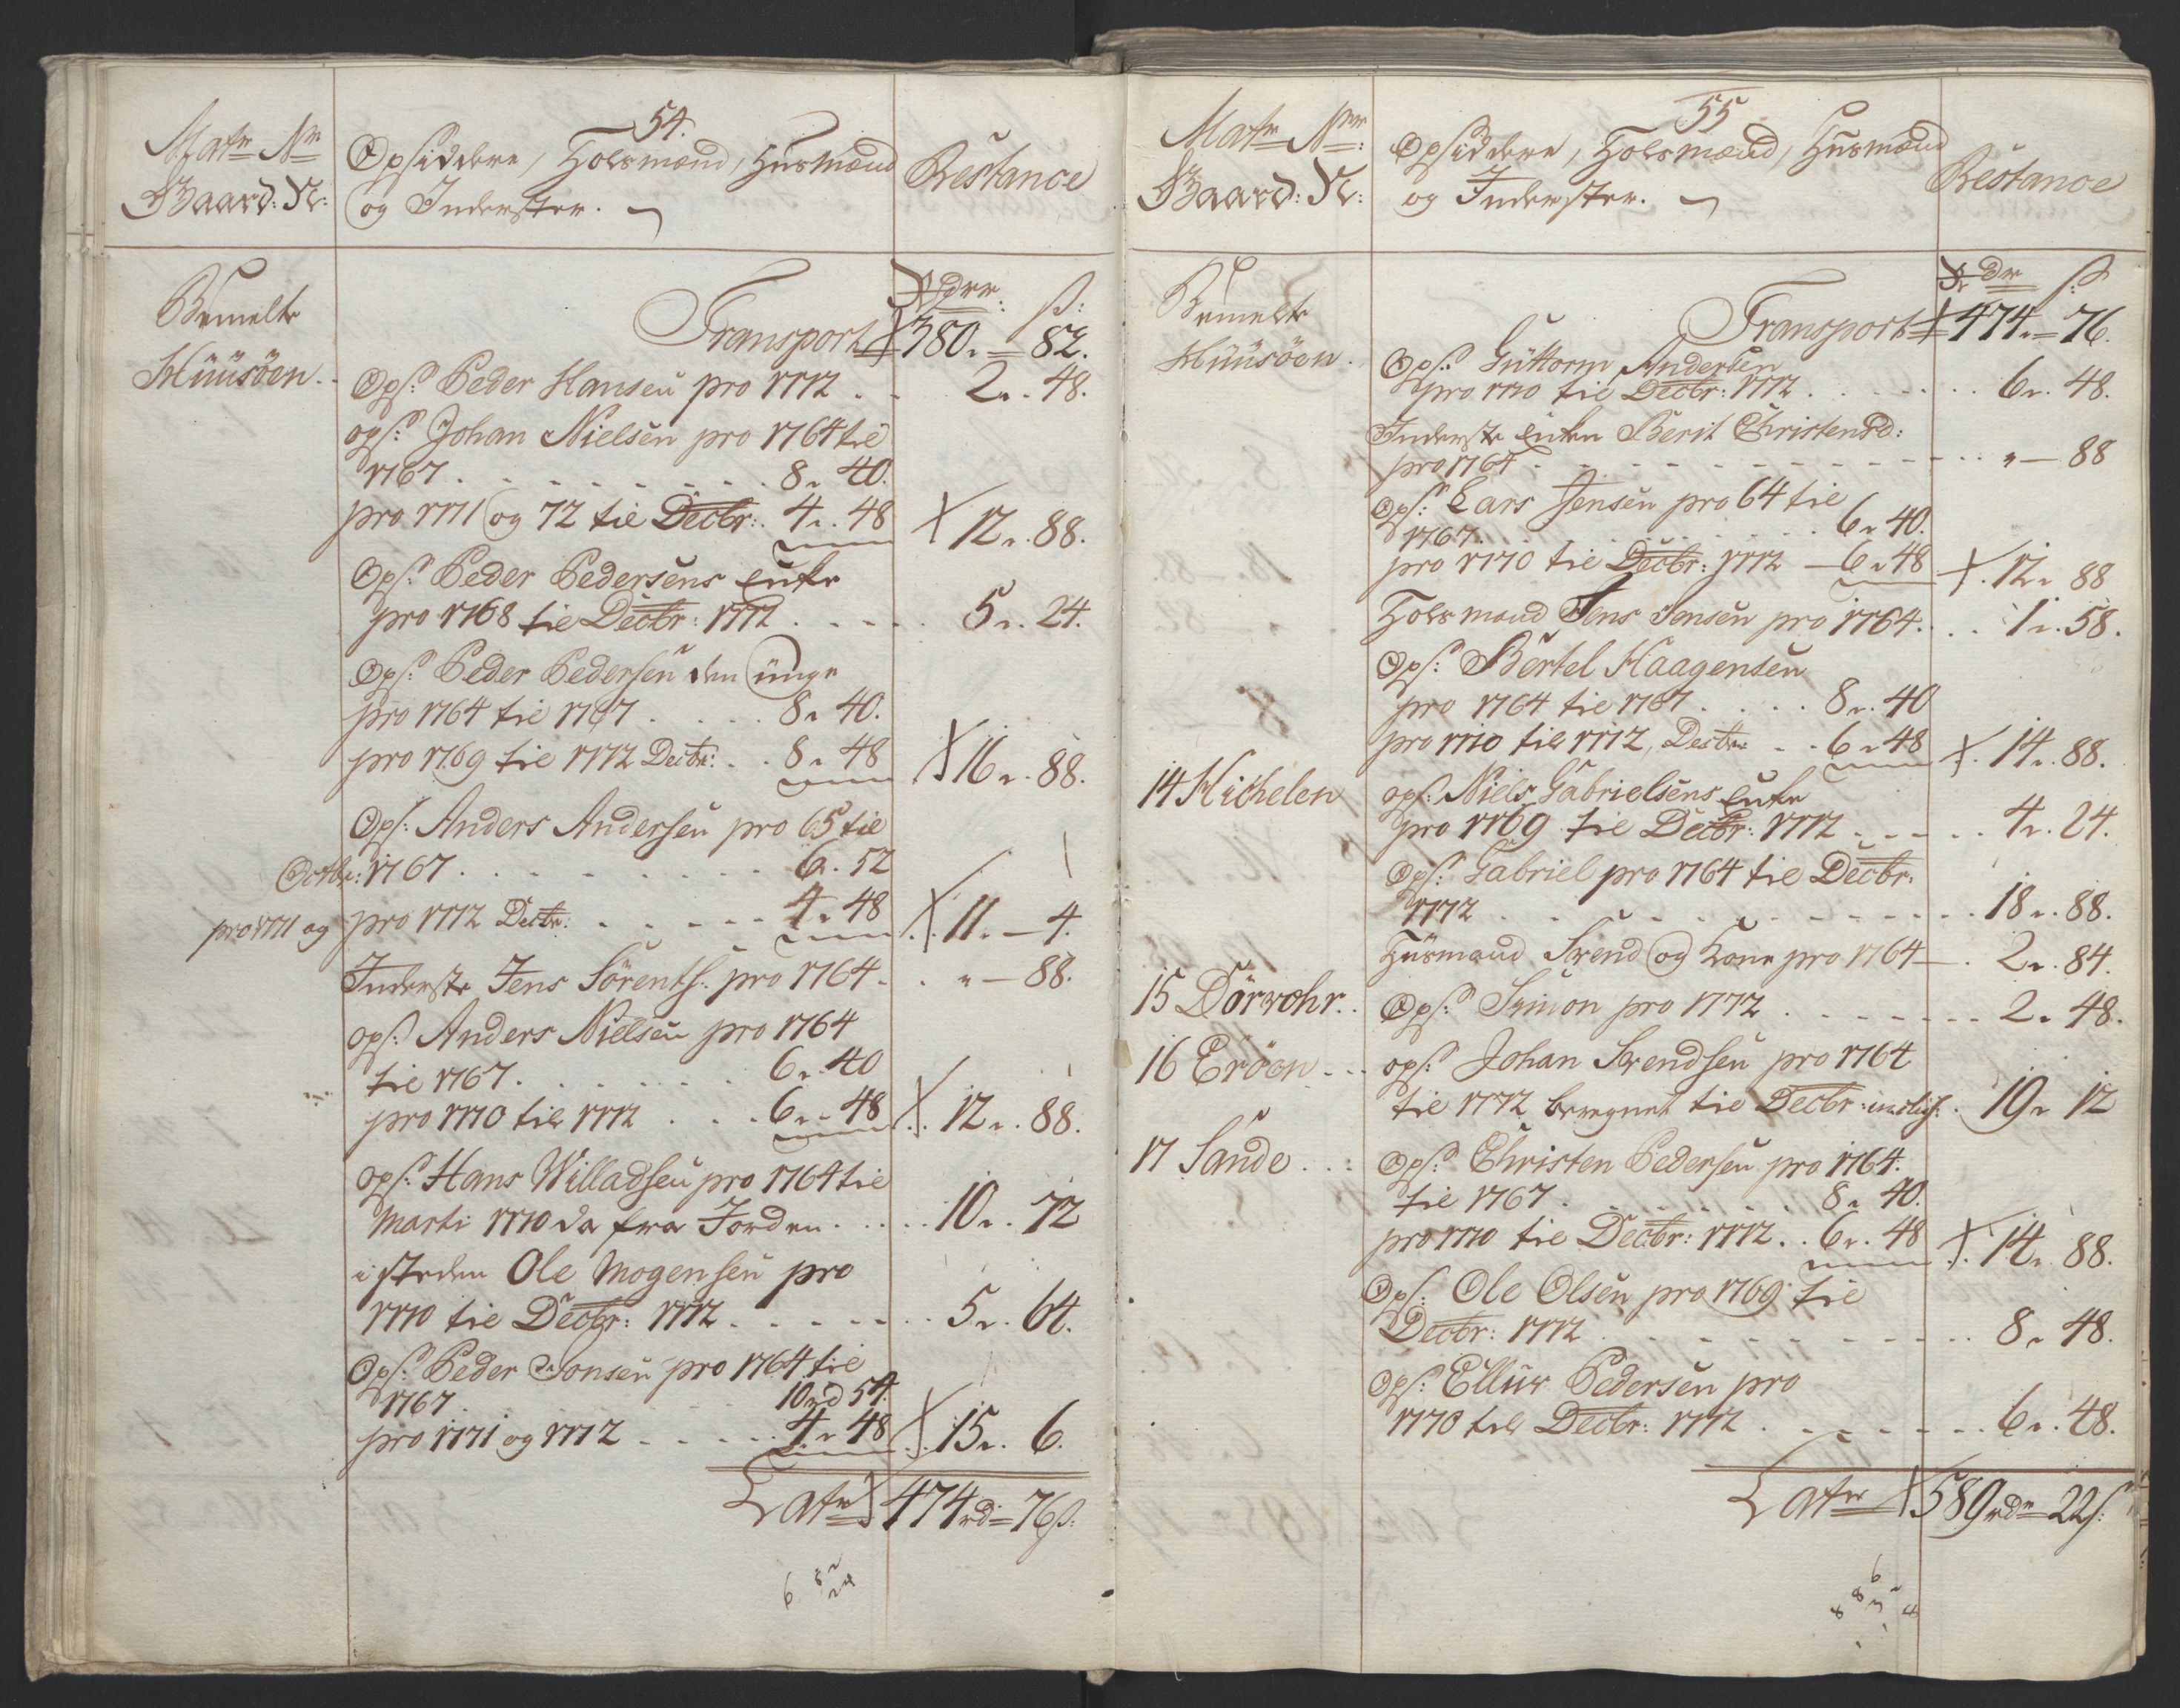 54.
Matr Nr
Gaard: N:
Opsiddere, Holsmænd, Husmænd
og Inderster.
Restance
Bemelte
Huusöen.
Rdrr: ſs:
Transport 380. = 82.
Ops: Peder Hansen pro 1772 . . 2 „ 48.
ops: Johan Nielsen pro 1764 til
1767 . . . . . . 8 „ 40.
pro 1771 og 72 til Decbr: 4 „ 48
12 „ 88.
Ops: Peder Pedersens Enke
pro 1768 til Decbr: 1772 . . . . 5 „ 24.
Ops: Peder Pedersen den unge
pro 1764 til 1767 . . . . 8 „ 40.
pro 1769 til 1772 Decbr: . . 8 „ 48
16 „ 88.
Ops: Anders Andersen pro 65 til
Octbr: 1767 . . . . . . 6 . 52
pro 1771 og pro 1772 Decbr: . . . . 4 „ 48
11. — 4.
Inderste Jens Sörents. pro 1764 . . „ — 88.
ops: Anders Nielsen pro 1764
til 1767 . . . . . . 6 „ 40
pro 1770 til 1772 . . . 6 „ 48
12 „ 88.
ops: Hans Willadsen pro 1764 til
Marti 1770 da fra Jorden . . . . 10 „ 72
i steden Ole Mogensen pro
1770 til Decbr: 1772 . . . . . . 5 „ 64.
Ops: Peder Jonsen pro 1764 til
1767 10rd 54.
pro 1771 og 1772 . . . . . 4 „ 48
15 „ 6.
Latr 474rd = 76ſs:
55
Matr Nrr:
Gaard: N:
Opsiddere, Holsmænd, Husmænd
og Inderster.
Restance
Bemelte
Huusöen.
Rdr ſs:
Transport 474. = 76.
Ops: Guttorm Andersen
pro 1770 til Decbr: 1772 . . . . . . 6 „ 48.
Inderste Enken Berit Christensd:
pro 1764 . . . . . . . . . „ — 88
Ops: Lars Jensen pro 64 til
1767 . . . . . . 6 „ 40.
pro 1770 til Decbr: 1772 — 6 „ 48
12 „ 88
Holsmand Jens Jensen pro 1764. . . 1 „ 58.
Ops: Bertel Haagensen
pro 1764 til 1767 . . . . 8 „ 40
pro 1770 til 1772, Decbr . . 6 „ 48
14 „ 88.
14 Hichelen ops: Niels Gabrielsens Enke
pro 1769 til Decbr: 1772 . . . . . 4 „ 24.
Ops: Gabriel pro 1764 til Decbr.
1772 . . . . . . . . . 18 „ 88.
Husmand Svend og Kone pro 1764 — . 2 „ 84.
15 Dörvohr. . Ops: Simon pro 1772 . . . . . . 2 „ 48.
16 Eröen . . . ops: Johan Svendsen pro 1764
til 1772 beregnet til Decbr: inclus: . 19 „ 12
17 Sande . . : Ops: Christen Pedersen pro 1764.
til 1767 . . . . . . 8 „ 40.
pro 1770 til Decbr: 1772 . . 6 „ 48
14 „ 88.
Ops: Ole Olsen pro 1769 til
Decbr: 1772 . . . . . . . . 8 „ 48.
Ops: Ellier Pedersen pro
1770 til Decbr: 1772 . . . . . . 6 „ 48.
Latr 589rdr = 22ſ: